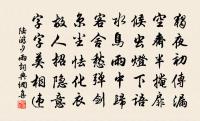 獨夜初傳漏
空齋半掩扉
候虫燈下語
水鳥雨中歸
客舍愁彈劍
京塵怯化衣
故人招隱意
字字莫相違
陸游夕雨詞